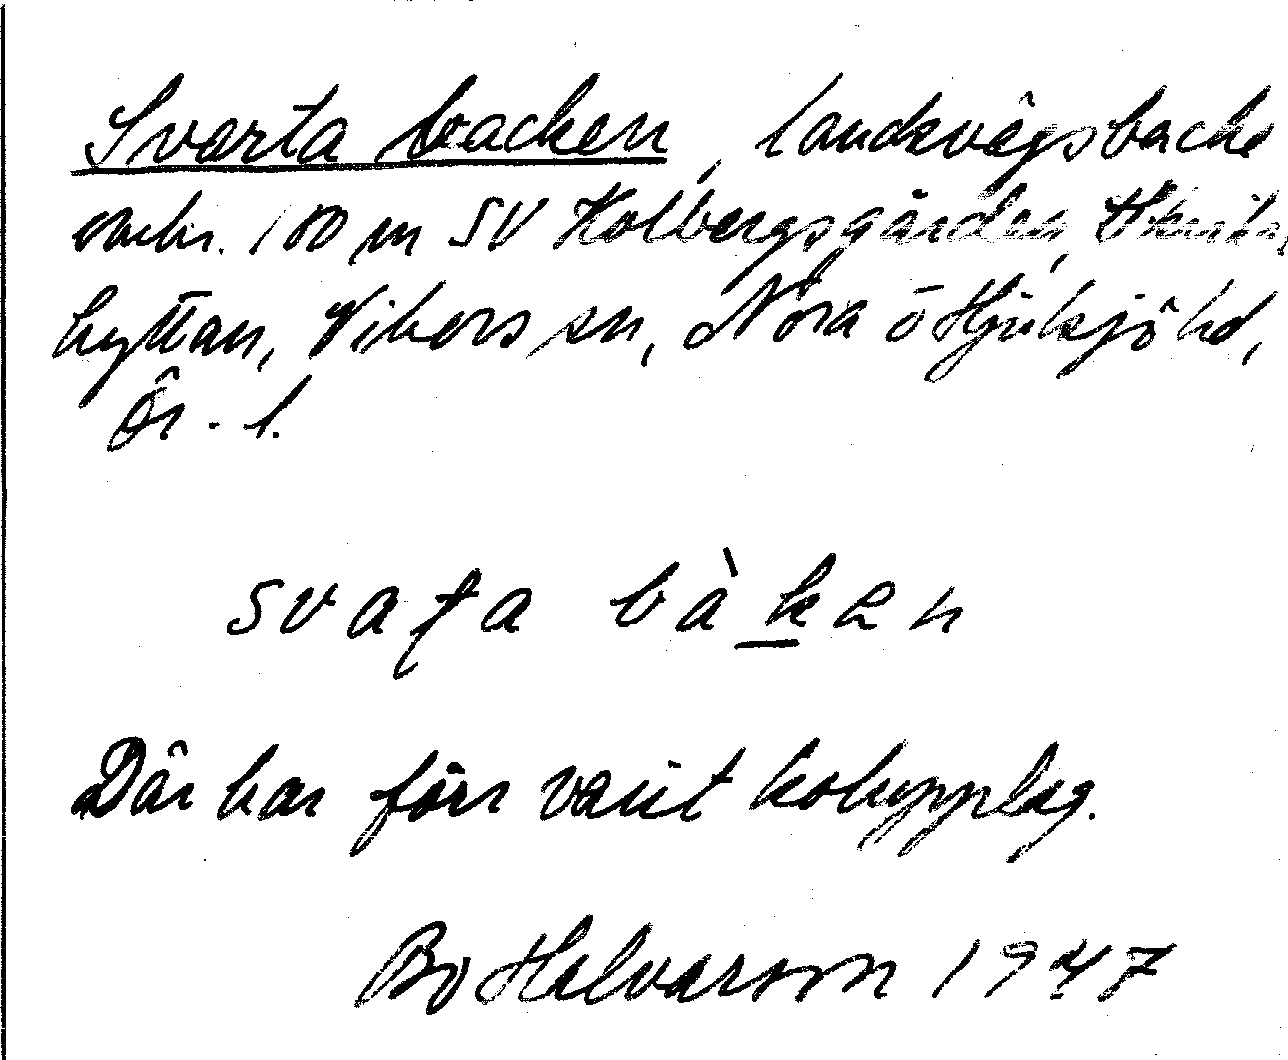 Svarta backen, landsvägsbacke
omkr. 100 m SV Kolbergsgården,
hyttan, Vikers sn, Nora o Hjulsjö hd,
Ör. l.
svaʈa bàkən
Där har förr varit kolupplag.
Bo Halvarson 1947